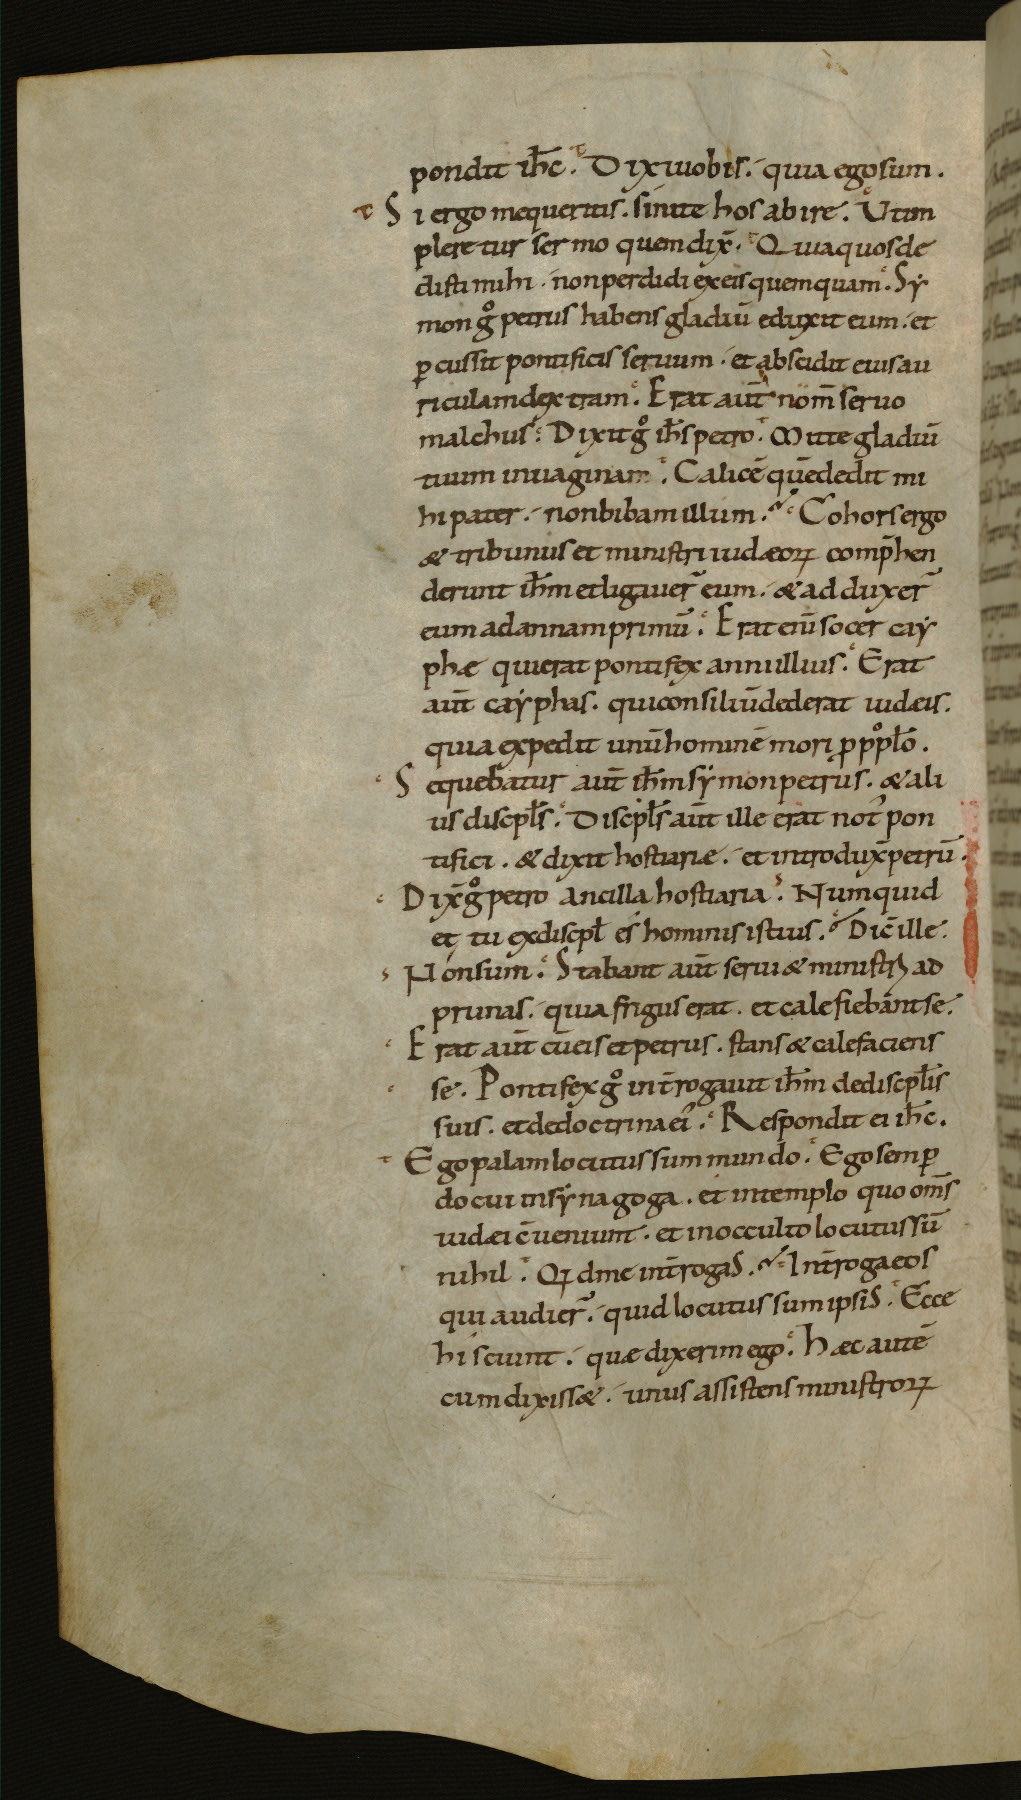 pondit ih̅c. t Dixi uobis. quia ego sum.
t Si ergo me queritis. sinite hos abire. c Ut im
pleretur sermo quem dix̅. t Quia quos de
disti mihi. non perdidi ex eis quemquam. c Sy
mon g̊ petrus habens gladiū eduxit eum. et
ꝑcussit pontificis seruum. et abscidit eius au
riculam dextram. c Erat aut̅ nom̅ seruo
malchus. c Dixit g̊ ih̅s petro. t Mitte gladiū
tuum in uaginam. c Calicē quē dedit mi
hi pater. non bibam illum. c Cohors ergo
& tribunus et ministri iudæoꝝ comp̅hen
derunt ih̅m et ligauer̅ eum. & adduxer̅
eum ad annam primū. c Erat eni̅ socer cay
phæ qui erat pontifex anni illius. c Erat
aut̅ cayphas. qui consiliū dederat iudæis.
quia expedit unū hominē mori ꝓ pp̅lo.
c Sequebatur aut̅ ih̅m symon petrus. & ali
us discpl̅s. c Discpl̅s aut̅ ille erat not᷒ pon
tifici. & dixit hostiariæ. et introdux̅ petrū.
c Dix̅ g̊ petro ancilla hostiaria. s Numquid
et tu ex discpl̅ es hominis istius. c Dic̅ ille.
s Non sum. c Stabant aut̅ serui & ministri ad
prunas. quia frigus erat. et calefiebant se.
c Erat aut̅ cū eis et petrus. stans & calefaciens
c se. Pontifex g̊ int̅rogauit ih̅m de discpl̅is
suis. et de doctrina ei᷒. c Respondit ei ih̅c.
t Ego palam locutus sum mundo. c Ego semꝑ
docui in synagoga. et in templo quo om̅s
iudæi c̅ueniunt. et in occulto locutus sū
nihil. Qd me int̅rogas. Int̅roga eos
qui audier̅. quid locutus sum ipsis. c Ecce
hi sciunt. quæ dixerim ego. c Hæc autē
cum dixiss&. unus assistens ministroꝝ